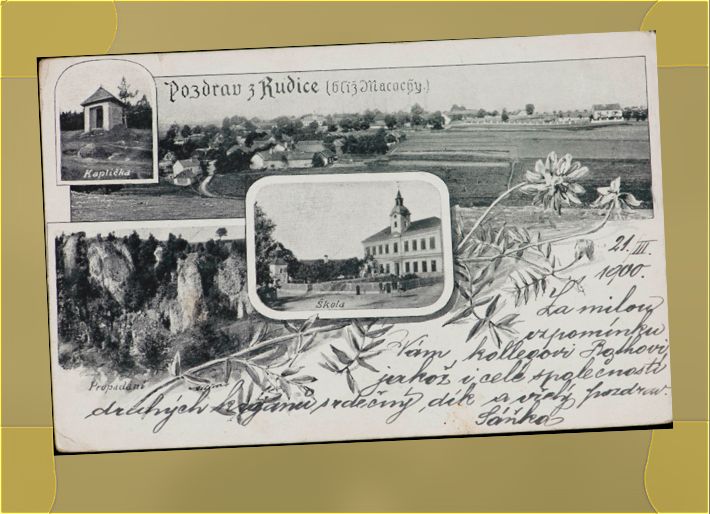 Pozdrav z Rudice (blíž Macochy.)
Kaplička
Škola
Propadání
21. III.
1900.
Za milou
vzpomínku
Vám, kollegovi
jakož i celé společnosti
druhých srdečný dík a pozdrav.
Sáňka